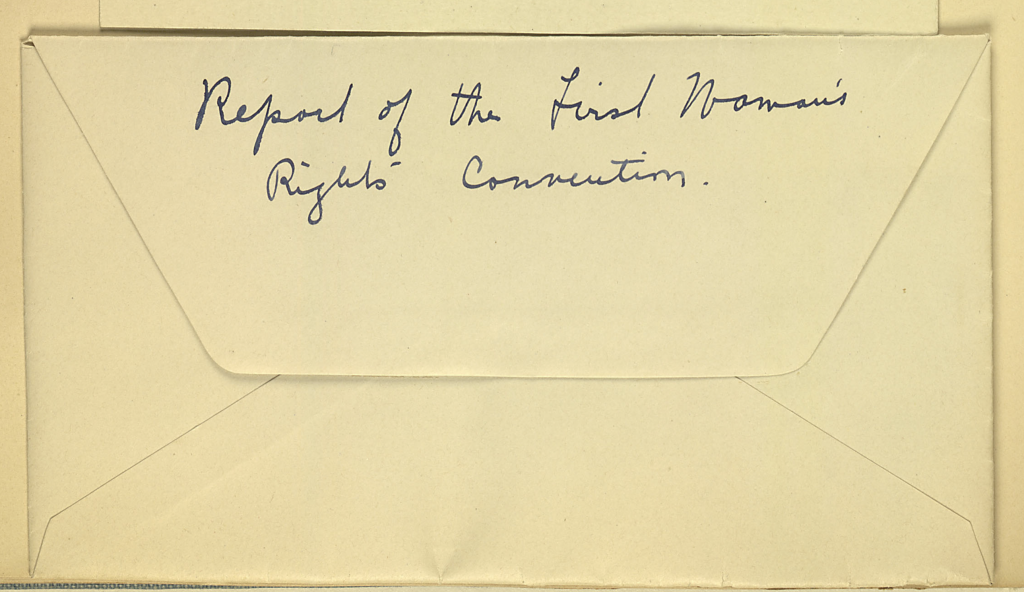 Report of the First Woman's
Rights Convention.